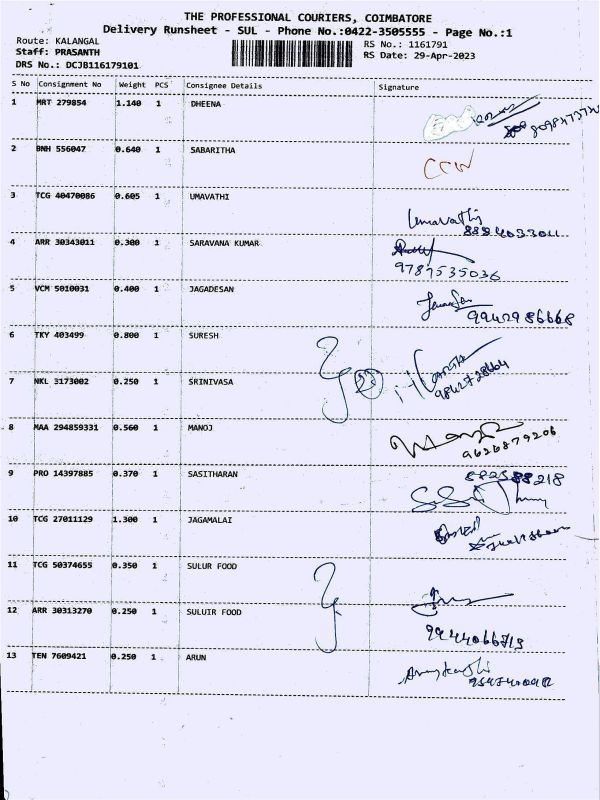 THE PROFESSIONAL COURIERS, COIMBATORE
Delivery Runsheet - SUL - Phone No.:0422-3505555 - Page No.:1
Route: KALANGAL
Staff: PRASANTH
DRS No.: DCJB116179101
RS No.: 1161791
RS Date: 29-Apr-2023
S No Consignment No Weight PCS Consignee Details Signature
1 MRT 279854 1.140 1 DHEENA
2 BNH 556047 0.640 1 SABARITHA
CCW
3 TCG 40470086 0.605 1 UMAVATHI
Umavathi
8884033011
4 ARR 30343011 0.300 1 SARAVANA KUMAR
9787535036
5 VCM 5010031 0.400 1 JAGADESAN
9942986668
6 TKY 403499 0.800 1 SURESH
9842728664
7 NKL 3173002 0.250 1 SRINIVASA
8 MAA 294859331 0.560 1 MANOJ
9626879206
9 PRO 14397885 0.370 1 SASITHARAN
10 TCG 27011129 1.300 1 JAGAMALAI
11 TCG 50374655 0.350 1 SULUR FOOD
12 ARR 30313270 0.250 1 SULUIR FOOD
9944066713
13 TEN 7609421 0.250 1 ARUN